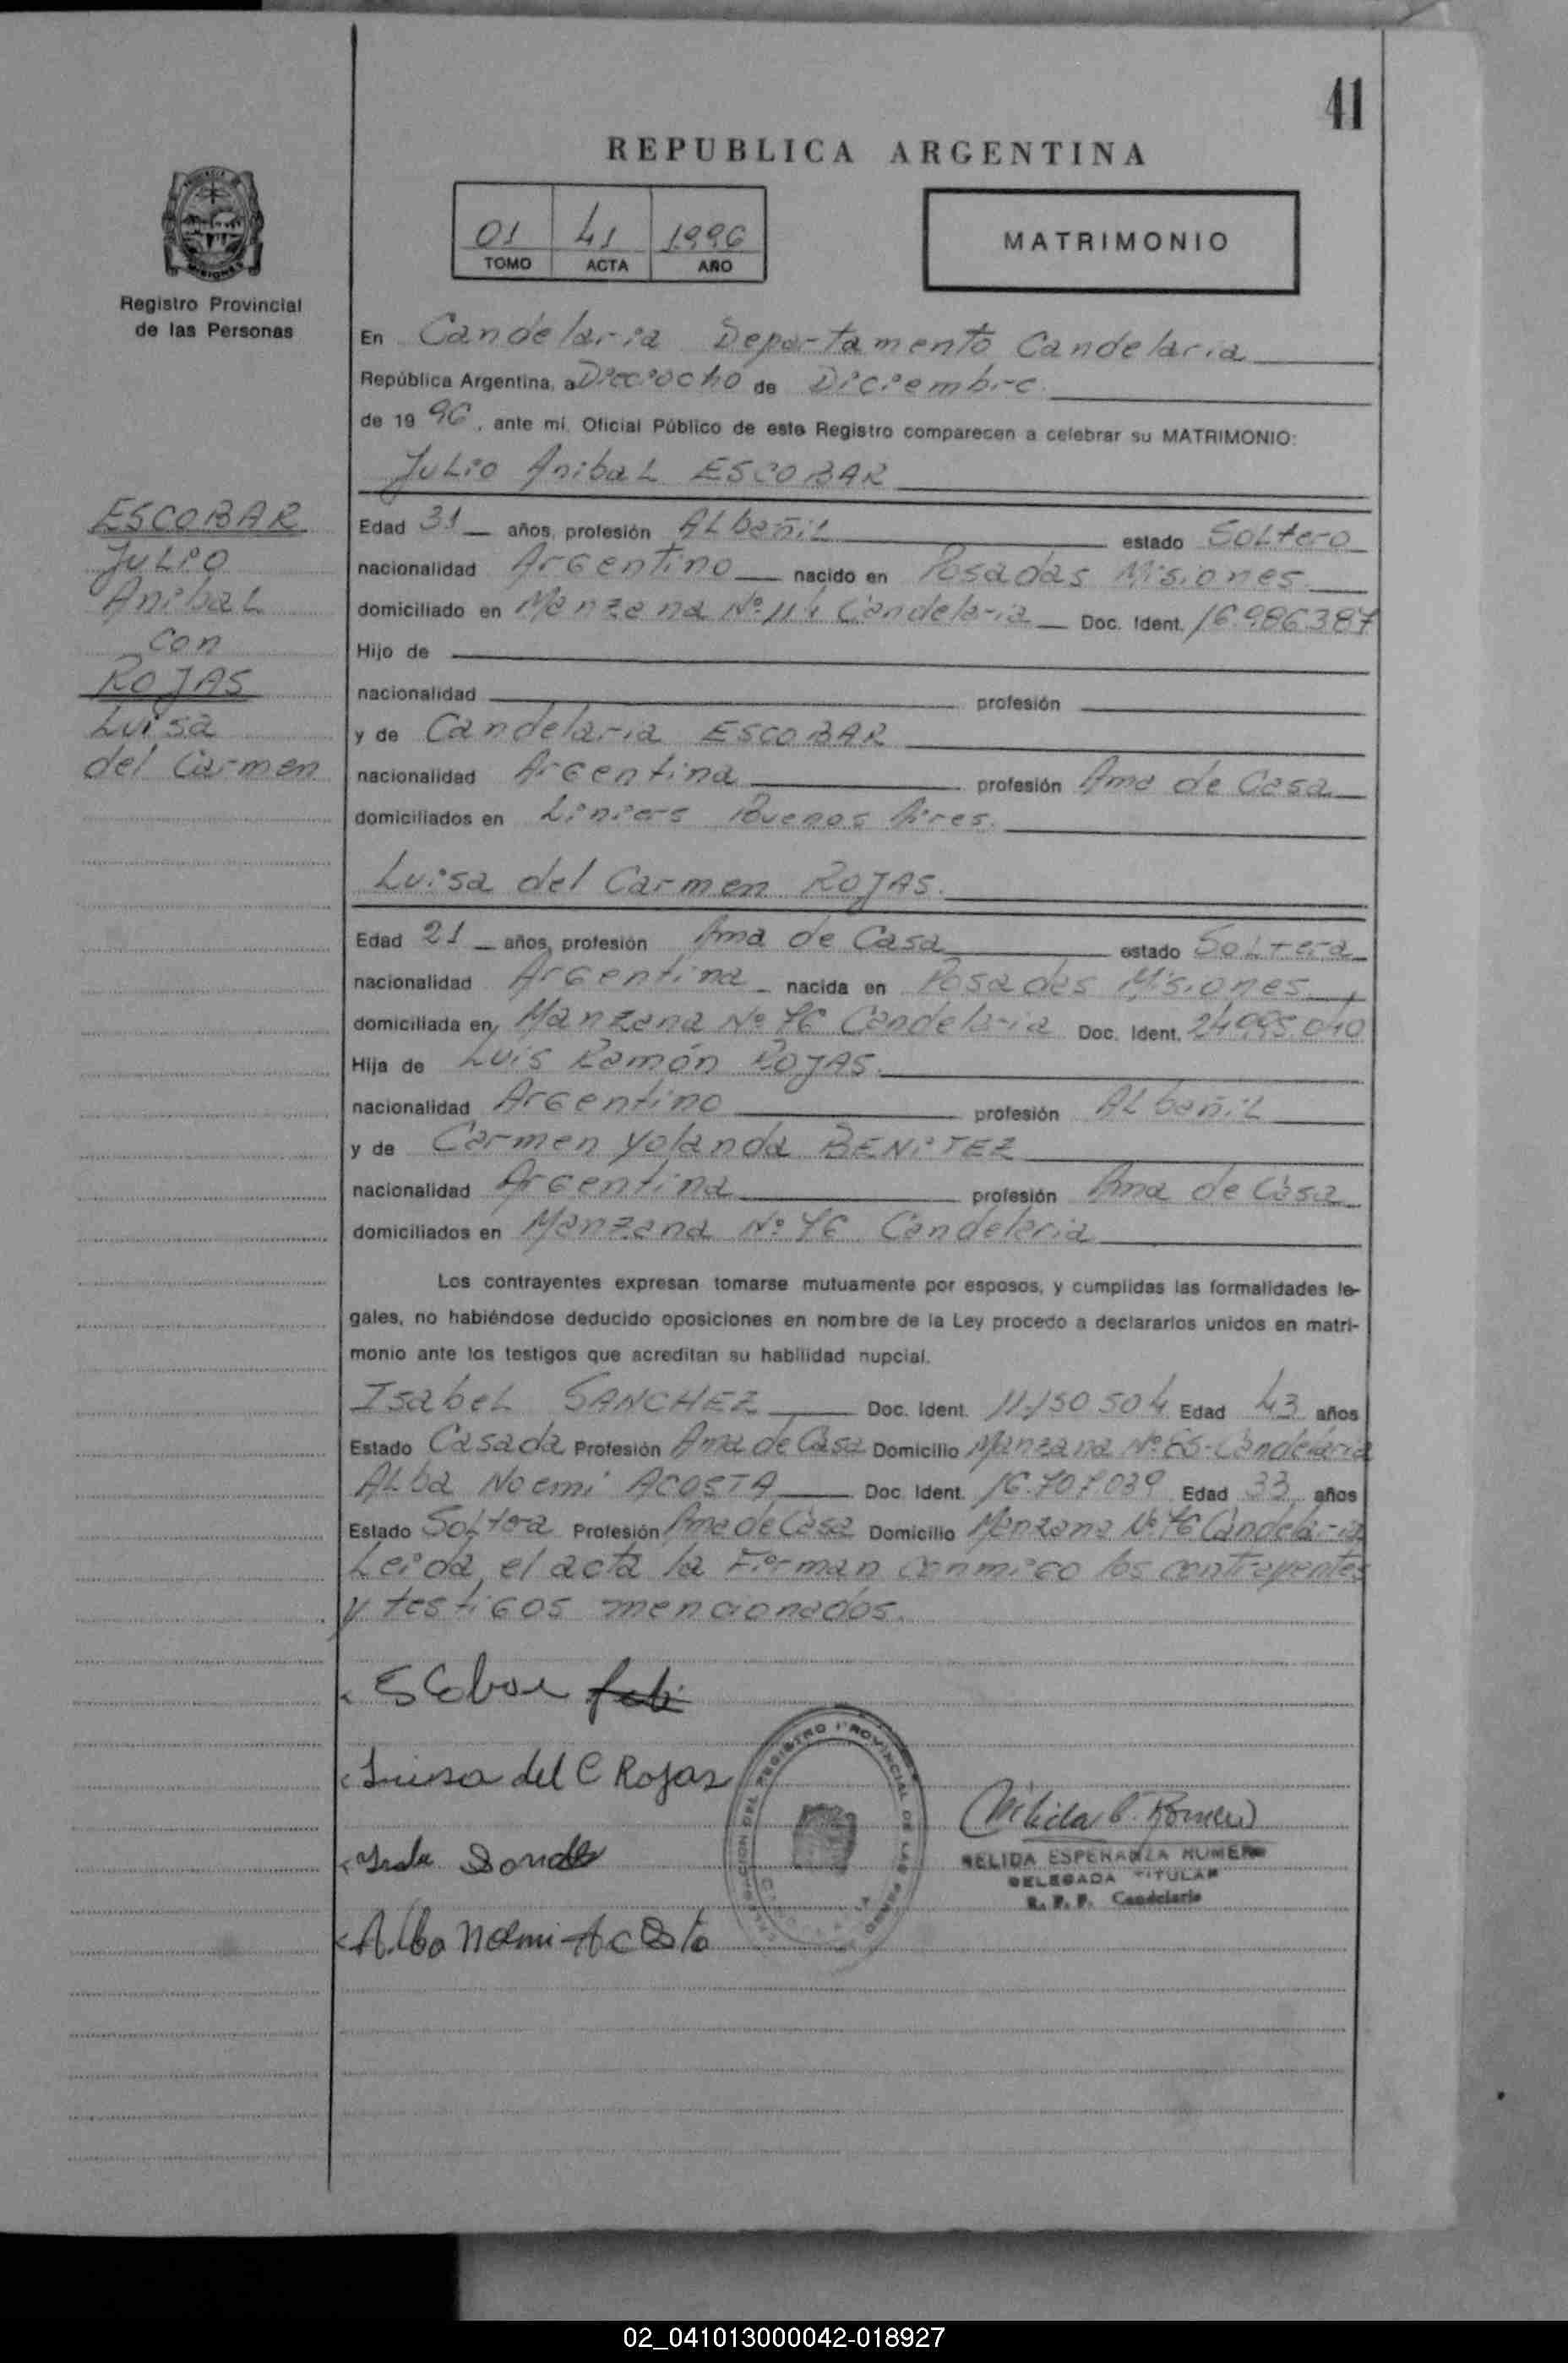 41
REPUBLICA ARGENTINA
01 41 1996
TOMO ACTA AÑO
MATRIMONIO
MISIONES
Registro Provincial
de las Personas
ESCOBAR
Julio
Anibal
con
ROJAS
Luisa
del Carmen
En Candelaria Departamento Candelaria
República Argentina, a Dieciocho de Diciembre.
de 19 96, ante mí, Oficial Público de este Registro comparecen a celebrar su MATRIMONIO:
Julio Anibal ESCOBAR
Edad 31 años, profesión Albañil estado Soltero
nacionalidad Argentino nacido en Posadas Misiones.
domiciliado en Manzana Nº Candelaria Doc. Ident. 16.986.387
Hijo de
nacionalidad profesión
y de Candelaria ESCOBAR
nacionalidad Argentina profesión Ama de Casa
domiciliados en Liniers Buenos Aires.
Luisa del Carmen ROJAS.
Edad 21 años, profesión Ama de Casa estado Soltera
nacionalidad Argentina nacida en Posadas Misiones
domiciliada en Manzana Nº 76 Candelaria Doc. Ident. 24.095.040
Hija de Luis Ramón ROJAS.
nacionalidad Argentino profesión Albañil
y de Carmen Yolanda BENITEZ
nacionalidad Argentina profesión Ama de Casa
domiciliados en Manzana Nº 76 Candelaria
Los contrayentes expresan tomarse mutuamente por esposos, y cumplidas las formalidades le-
gales, no habiéndose deducido oposiciones en nombre de la Ley procedo a declararlos unidos en matri-
monio ante los testigos que acreditan su habilidad nupcial.
Isabel SANCHEZ Doc. Ident. 11.150.504 Edad 43 años
Estado Casada Profesión Ama de Casa Domicilio Manzana Nº Candelaria
Alba Noemi ACOSTA Doc. Ident. 16.707.039 Edad 33 años
Estado Soltera Profesión Ama de Casa Domicilio Manzana Nº 76 Candelaria
Leida el acta la Firman conmigo los contrayentes
y testigos mencionados.
Escobar
Luisa del C Rojas
Nélida E. Romero
NELIDA ESPERANZA ROMERO
DELEGADA TITULAR
R. P. P. Candelaria
Alba Noemi Acosta
REGISTRO PROVINCIAL DE LAS
02_041013000042-018927